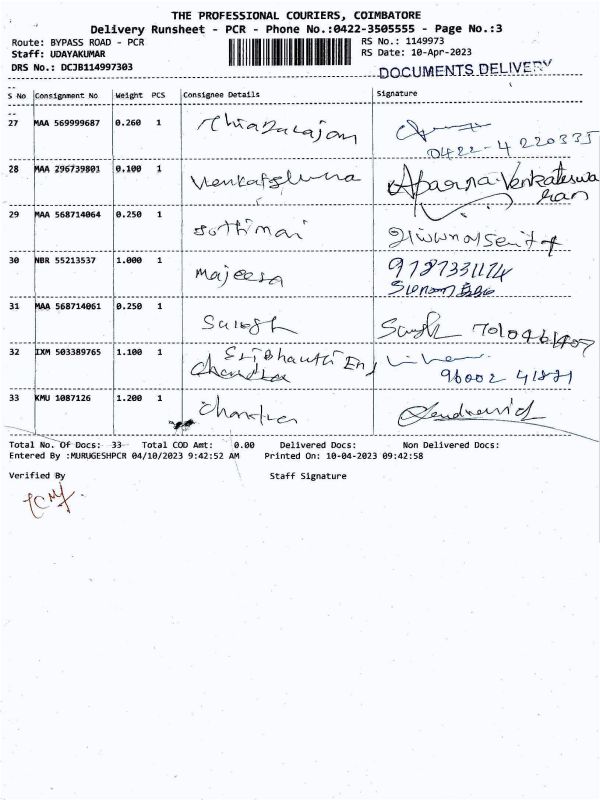 THE PROFESSIONAL COURIERS, COIMBATORE
Delivery Runsheet - PCR - Phone No.:0422-3505555 - Page No.:3
Route: BYPASS ROAD - PCR RS No.: 1149973
Staff: UDAYAKUMAR RS Date: 10-Apr-2023
DRS No.: DCJB114997303 DOCUMENTS DELIVERY
S No Consignment No Weight PCS Consignee Details Signature
27 MAA 569999687 0.260 1
0422-4220335
28 MAA 296739801 0.100 1 Aparna.Venkateswa
ran
29 MAA 568714064 0.250 1 Jothimai
30 NBR 55213537 1.000 1 Majeesa 9787331174
31 MAA 568714061 0.250 1 Suresh 7010461407
32 IXM 503389765 1.100 1
Chandra 96002 41871
33 KMU 1087126 1.200 1 Chandra
Total No. Of Docs: 33 Total COD Amt: 0.00 Delivered Docs: Non Delivered Docs:
Entered By :MURUGESHPCR 04/10/2023 9:42:52 AM Printed On: 10-04-2023 09:42:58
Verified By Staff Signature